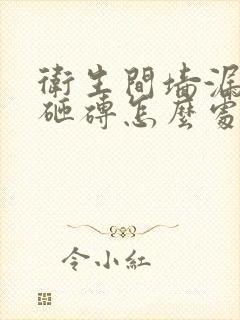 衛生間墻漏
砸磚怎麼處
令小紅